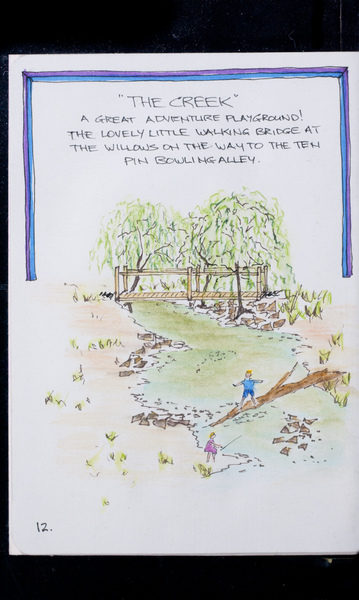 "THE CREEK"
A GREAT ADVENTURE PLAYGROUND!
THE LOVELY LITTLE WALKING BRIDGE AT
THE WILLOWS ON THE WAY TO THE TEN
PIN BOWLING ALLEY.
12.